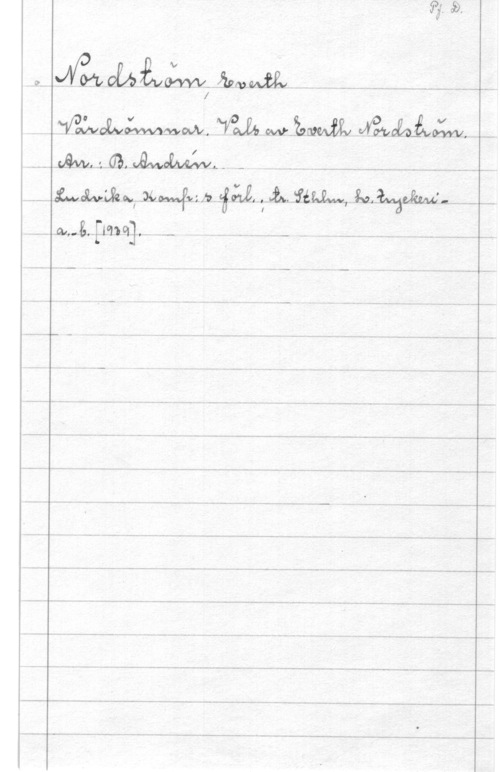 Pf. D.
Nordström, Everth
Vårdrömmar. Vals av Everth Nordström.
Arr.: B. Andrén.
Ludvika, Komp:s förl.; tr. Sthlm, lito.tryckeri-
a.-b. [1939].